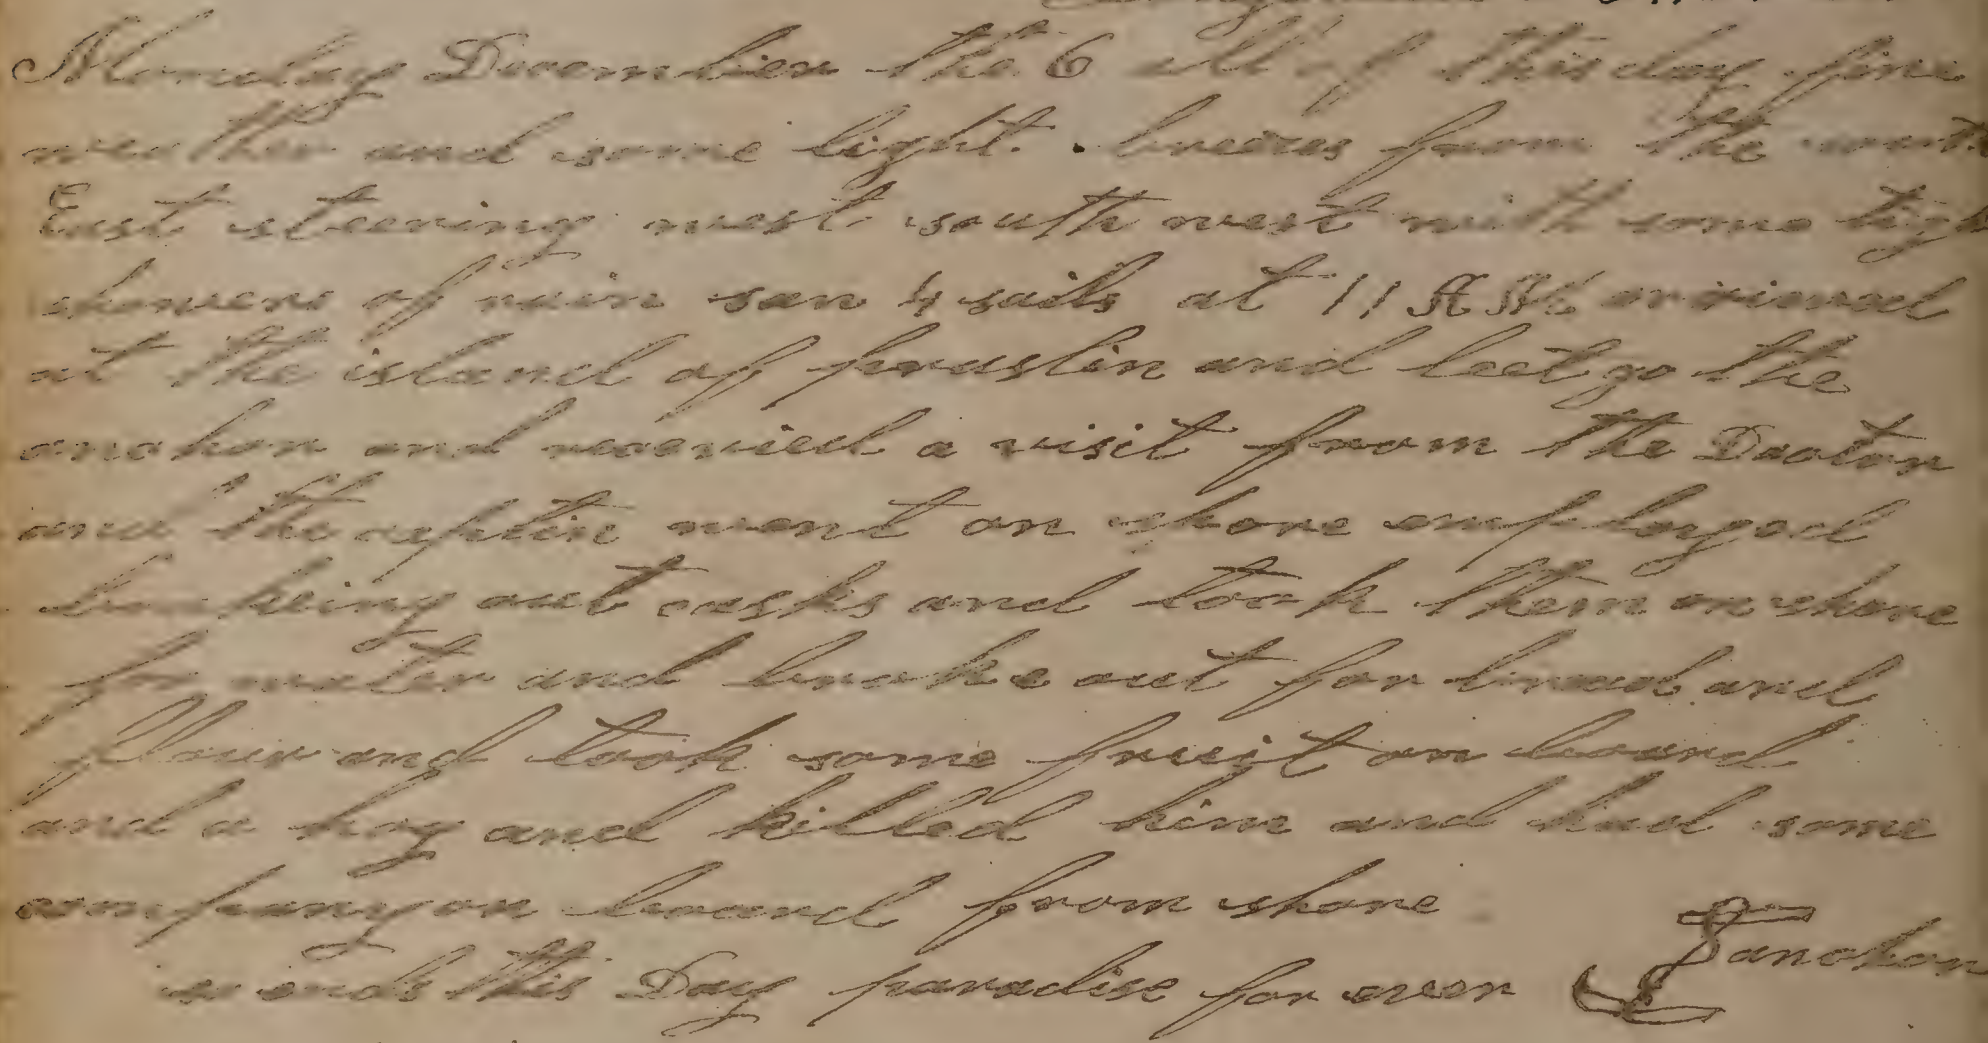 Monday December the 6 all of this day fine
weather and some light breezes from the
East steering west south west with some ligh
showers of rain san 4 sails at 11 AM arrived
at the island of praslin and leet go the
anchor and receivied a visit from the Doctor
and the captin went on shore employed
breaking out casks and took them on shore
for water and broke out for bread and
flour and took some fruit on board
and a hog and killed him and had some
company on board from shore
so ends this Day paradise for ever